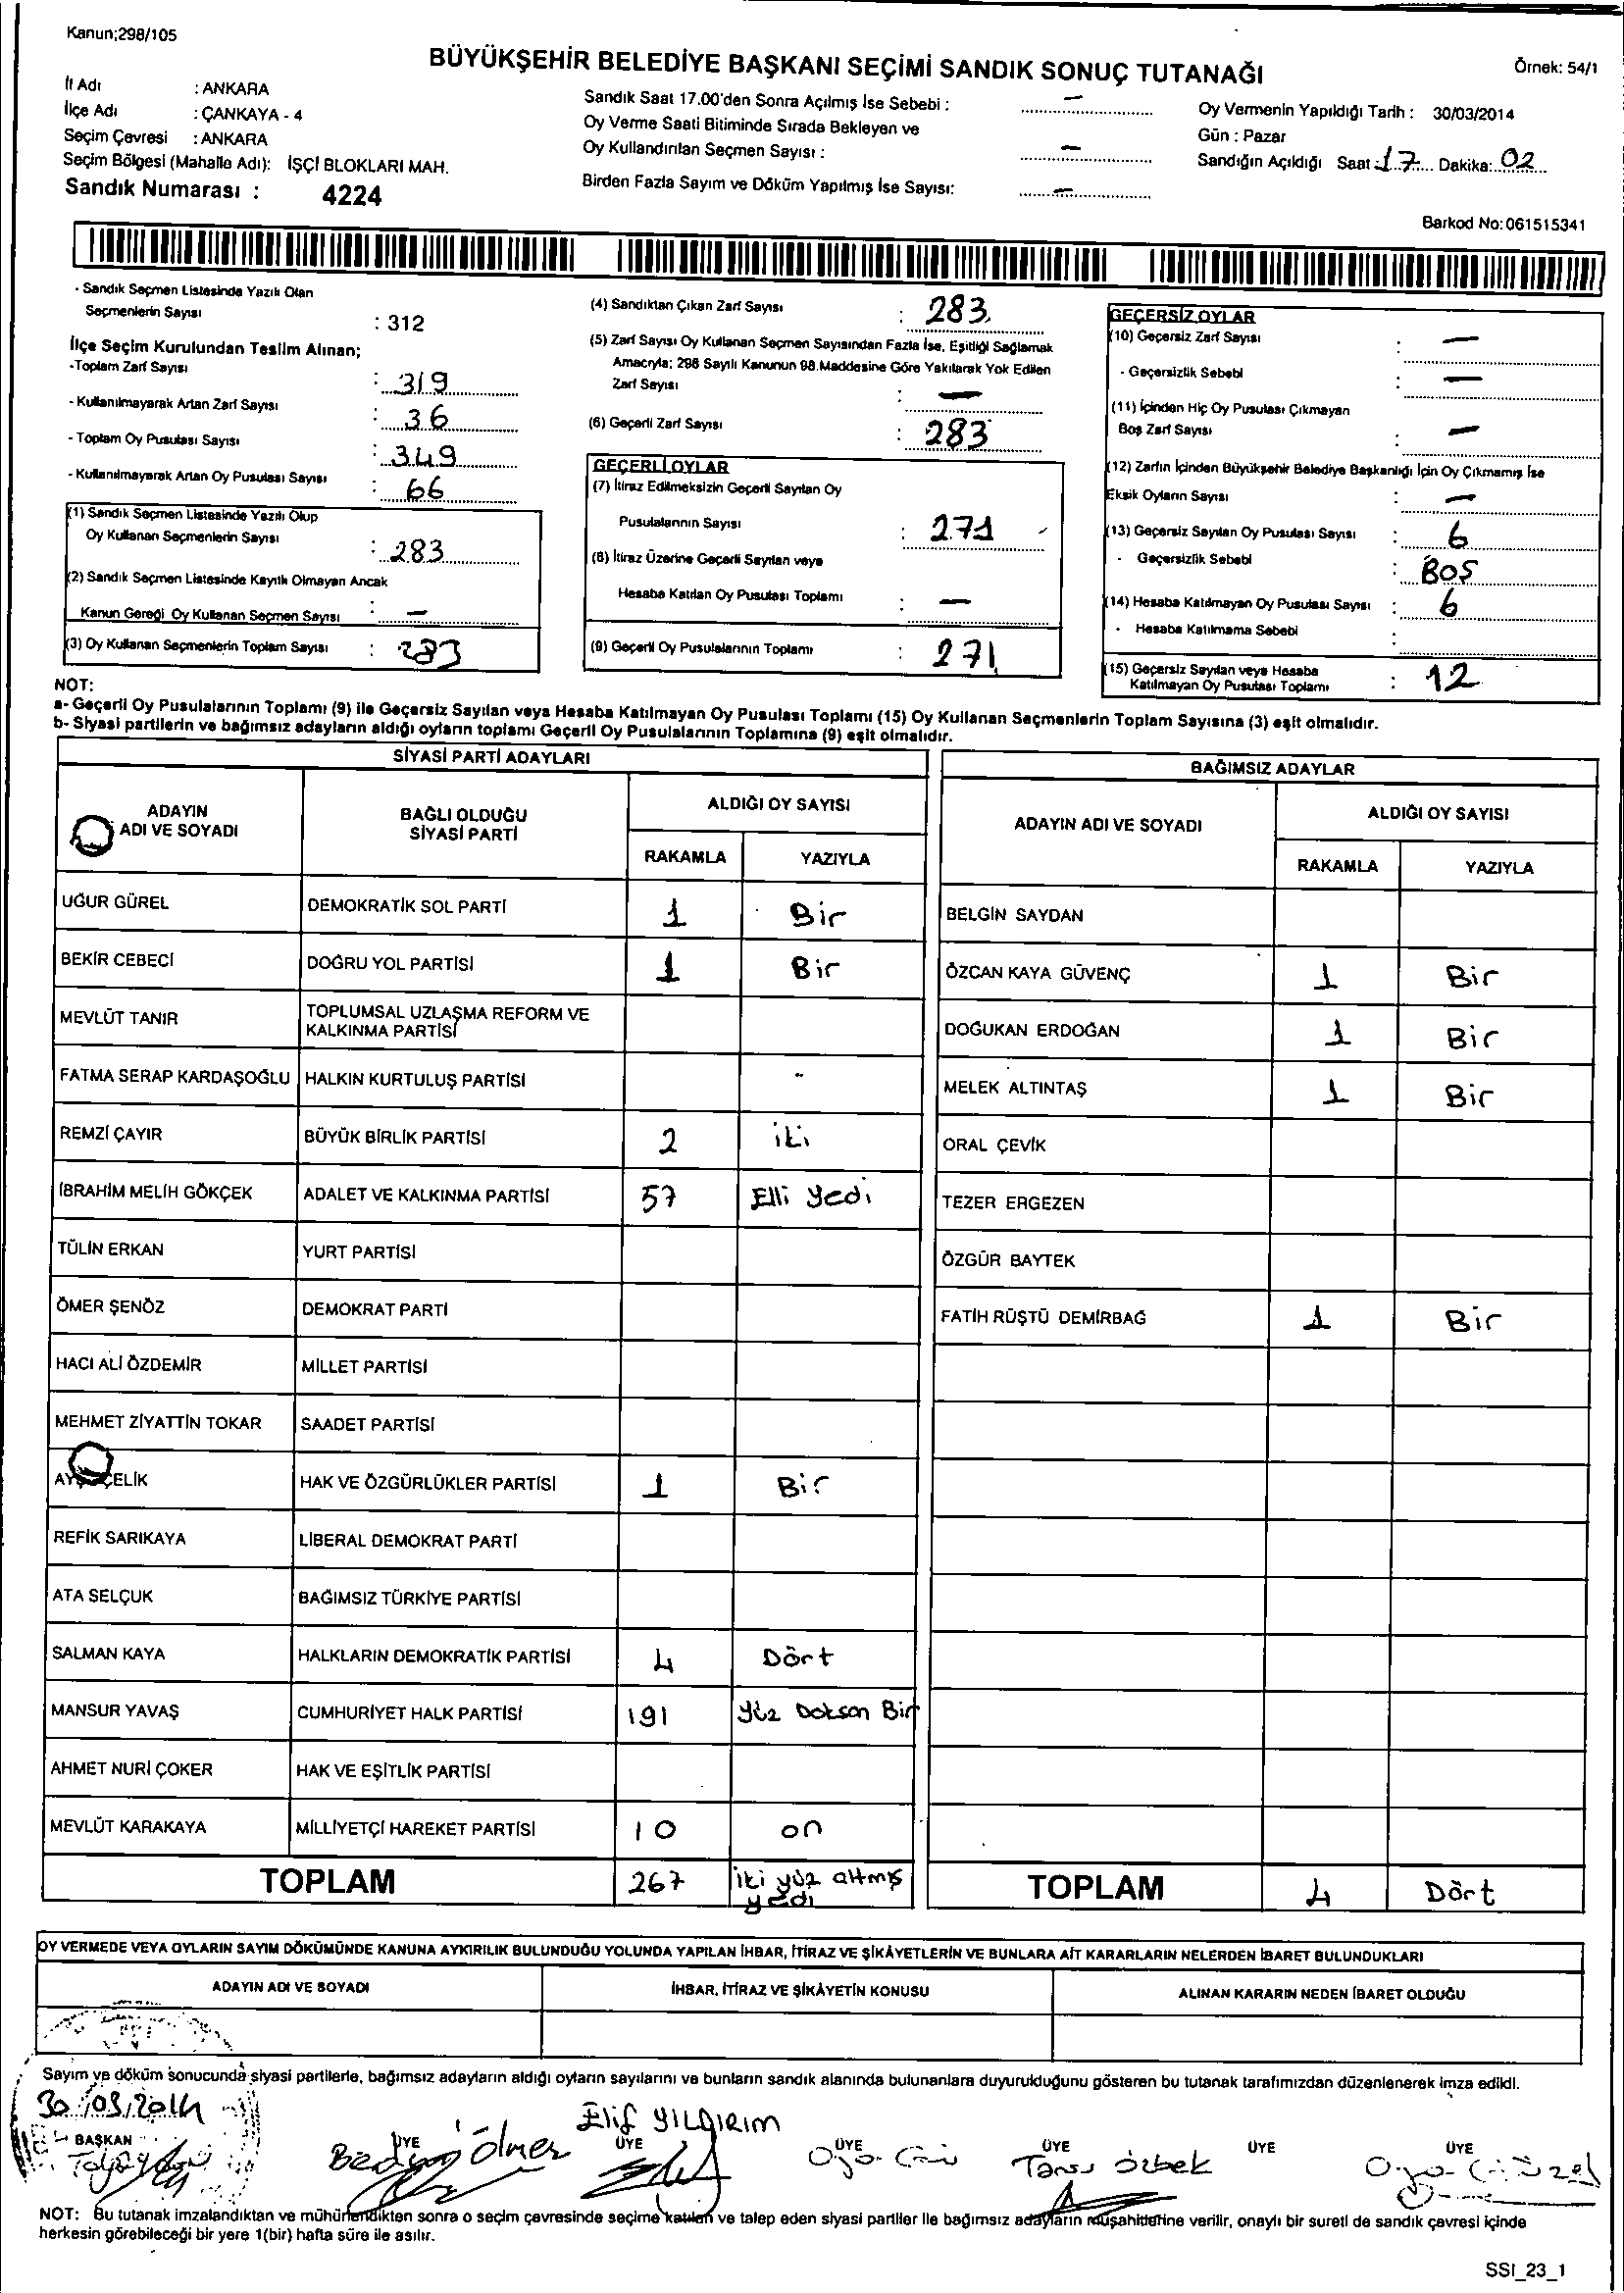 Kanun;298/105
BÜYÜKŞEHİR BELEDİYE BAŞKANI SEÇİMİ SANDIK SONUÇ TUTANAĞI
Örnek: 54/1
İl Adı : ANKARA
İlçe Adı : ÇANKAYA - 4
Seçim Çevresi : ANKARA
Seçim Bölgesi (Mahalle Adı): İŞÇİ BLOKLARI MAH.
Sandık Numarası : 4224
Sandık Saat 17.00'den Sonra Açılmış İse Sebebi : –
Oy Verme Saati Bitiminde Sırada Bekleyen ve
Oy Kullandırılan Seçmen Sayısı : –
Birden Fazla Sayım ve Döküm Yapılmış İse Sayısı: –
Oy Vermenin Yapıldığı Tarih : 30/03/2014
Gün : Pazar
Sandığın Açıldığı Saat 17 Dakika: 02
Barkod No: 061515341
- Sandık Seçmen Listesinde Yazılı Olan
Seçmenlerin Sayısı : 312
İlçe Seçim Kurulundan Teslim Alınan;
-Toplam Zarf Sayısı : 319
- Kullanılmayarak Artan Zarf Sayısı : 36
- Toplam Oy Pusulası Sayısı : 349
- Kullanılmayarak Artan Oy Pusulası Sayısı : 66
(1) Sandık Seçmen Listesinde Yazılı Olup
Oy Kullanan Seçmenlerin Sayısı : 283
(2) Sandık Seçmen Listesinde Kayıtlı Olmayan Ancak
Kanun Gereği Oy Kullanan Seçmen Sayısı : –
(3) Oy Kullanan Seçmenlerin Toplam Sayısı : 283
(4) Sandıktan Çıkan Zarf Sayısı : 283
(5) Zarf Sayısı Oy Kullanan Seçmen Sayısından Fazla İse, Eşitliği Sağlamak
Amacıyla; 298 Sayılı Kanunun 98.Maddesine Göre Yakılarak Yok Edilen
Zarf Sayısı : –
(6) Geçerli Zarf Sayısı : 283
GEÇERLİ OYLAR
(7) İtiraz Edilmeksizin Geçerli Sayılan Oy
Pusulalarının Sayısı : 271
(8) İtiraz Üzerine Geçerli Sayılan veya
Hesaba Katılan Oy Pusulası Toplamı : –
(9) Geçerli Oy Pusulalarının Toplamı : 271
GEÇERSİZ OYLAR
(10) Geçersiz Zarf Sayısı : –
- Geçersizlik Sebebi : –
(11) İçinden Hiç Oy Pusulası Çıkmayan
Boş Zarf Sayısı : –
(12) Zarfın İçinden Büyükşehir Belediye Başkanlığı İçin Oy Çıkmamış İse
Eksik Oyların Sayısı : –
(13) Geçersiz Sayılan Oy Pusulası Sayısı : 6
- Geçersizlik Sebebi : BOŞ
(14) Hesaba Katılmayan Oy Pusulası Sayısı : 6
- Hesaba Katılmama Sebebi :
(15) Geçersiz Sayılan veya Hesaba
Katılmayan Oy Pusulası Toplamı : 12
NOT:
a- Geçerli Oy Pusulalarının Toplamı (9) ile Geçersiz Sayılan veya Hesaba Katılmayan Oy Pusulası Toplamı (15) Oy Kullanan Seçmenlerin Toplam Sayısına (3) eşit olmalıdır.
b- Siyasi partilerin ve bağımsız adayların aldığı oyların toplamı Geçerli Oy Pusulalarının Toplamına (9) eşit olmalıdır.
SİYASİ PARTİ ADAYLARI
ADAYIN ADI VE SOYADI BAĞLI OLDUĞU SİYASİ PARTİ ALDIĞI OY SAYISI
RAKAMLA YAZIYLA
UĞUR GÜREL DEMOKRATİK SOL PARTİ 1 Bir
BEKİR CEBECİ DOĞRU YOL PARTİSİ 1 Bir
MEVLÜT TANIR TOPLUMSAL UZLAŞMA REFORM VE
KALKINMA PARTİSİ
FATMA SERAP KARDAŞOĞLU HALKIN KURTULUŞ PARTİSİ
REMZİ ÇAYIR BÜYÜK BİRLİK PARTİSİ 2 iki
İBRAHİM MELİH GÖKÇEK ADALET VE KALKINMA PARTİSİ 57 Elli Yedi
TÜLİN ERKAN YURT PARTİSİ
ÖMER ŞENÖZ DEMOKRAT PARTİ
HACI ALİ ÖZDEMİR MİLLET PARTİSİ
MEHMET ZİYATTİN TOKAR SAADET PARTİSİ
ÇELİK HAK VE ÖZGÜRLÜKLER PARTİSİ 1 Bir
REFİK SARIKAYA LİBERAL DEMOKRAT PARTİ
ATA SELÇUK BAĞIMSIZ TÜRKİYE PARTİSİ
SALMAN KAYA HALKLARIN DEMOKRATİK PARTİSİ 4 Dört
MANSUR YAVAŞ CUMHURİYET HALK PARTİSİ 191 Yüz Doksan Bir
AHMET NURİ ÇOKER HAK VE EŞİTLİK PARTİSİ
MEVLÜT KARAKAYA MİLLİYETÇİ HAREKET PARTİSİ 10 on
TOPLAM 267 iki yüz altmış
yedi
BAĞIMSIZ ADAYLAR
ADAYIN ADI VE SOYADI ALDIĞI OY SAYISI
RAKAMLA YAZIYLA
BELGİN SAYDAN
ÖZCAN KAYA GÜVENÇ 1 Bir
DOĞUKAN ERDOĞAN 1 Bir
MELEK ALTINTAŞ 1 Bir
ORAL ÇEVİK
TEZER ERGEZEN
ÖZGÜR BAYTEK
FATİH RÜŞTÜ DEMİRBAĞ 1 Bir
TOPLAM 4 Dört
OY VERMEDE VEYA OYLARIN SAYIM DÖKÜMÜNDE KANUNA AYKIRILIK BULUNDUĞU YOLUNDA YAPILAN İHBAR, İTİRAZ VE ŞİKÂYETLERİN VE BUNLARA AİT KARARLARIN NELERDEN İBARET BULUNDUKLARI
ADAYIN ADI VE SOYADI İHBAR, İTİRAZ VE ŞİKÂYETİN KONUSU ALINAN KARARIN NEDEN İBARET OLDUĞU
Sayım ve döküm sonucunda siyasi partilerle, bağımsız adayların aldığı oyların sayılarını ve bunların sandık alanında bulunanlara duyurulduğunu gösteren bu tutanak tarafımızdan düzenlenerek imza edildi.
30/03/2014
Elif YILDIRIM
BAŞKAN ÜYE ÜYE ÜYE ÜYE ÜYE ÜYE
Ölmez Özbek
NOT: Bu tutanak imzalandıktan ve mühürlendikten sonra o seçim çevresinde seçime katılan ve talep eden siyasi partiler ile bağımsız adayların müşahitlerine verilir, onaylı bir sureti de sandık çevresi içinde
herkesin görebileceği bir yere 1(bir) hafta süre ile asılır.
SSI_23_1